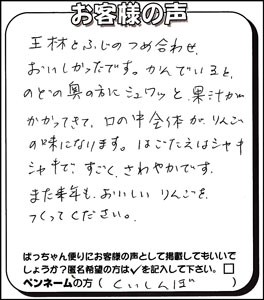 お客様の声
王林とふじのつめ合わせ、
おいしかったです。かんでいると、
のどの奥の方にシュワッと、果汁が
かかってきて、口の中全体が、りんご
の味になります。はごたえはシャキ
シャキで、すごく、さわやかです。
また来年も、おいしいりんごを、
つくってください。
ばっちゃん便りにお客様の声として掲載してもいいで
しょうか?匿名希望の方は✓を記入して下さい。□
ペンネームの方(くいしんぼ)